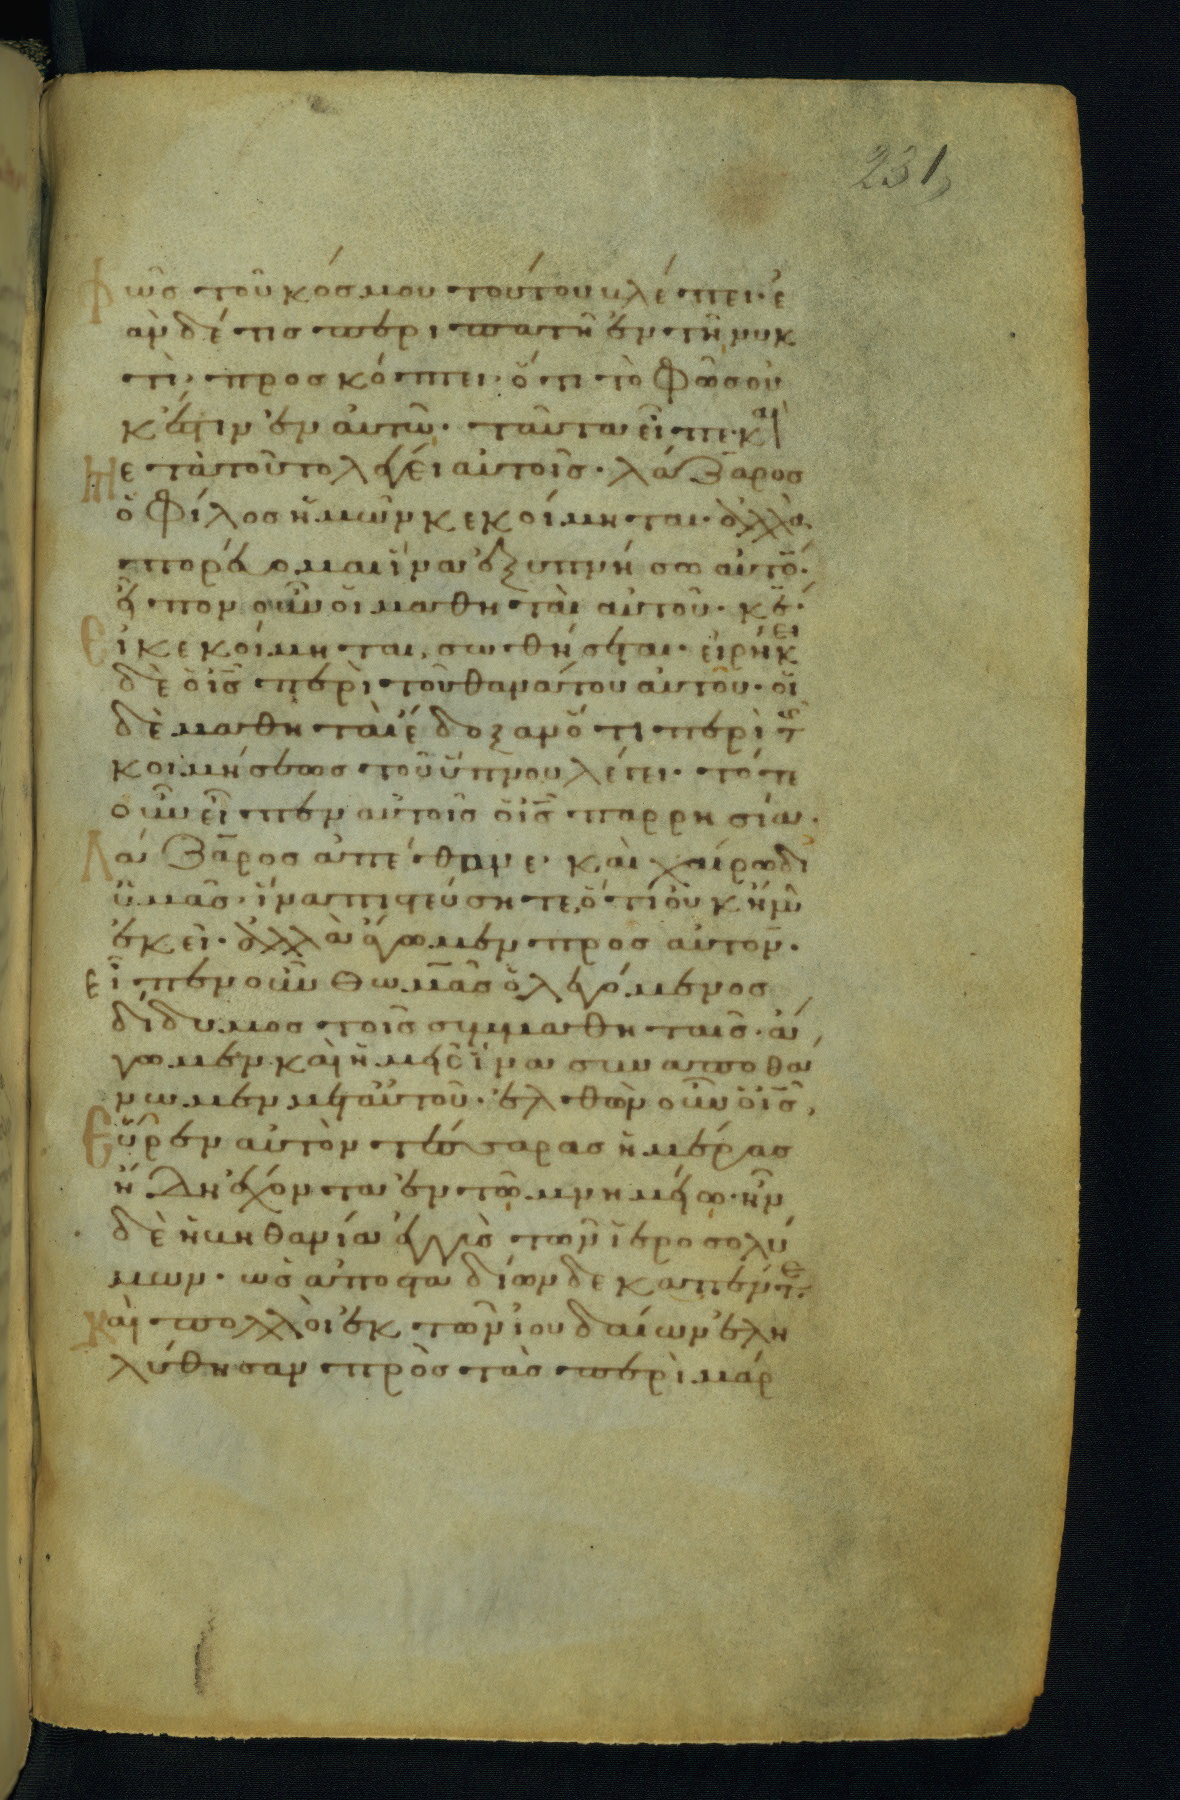 231
φῶς τοῦ κόσμου τούτου βλέπει· ἐ
ὰν δέ τις περιπατῆ ἐν τῆ νυκ
τὶ· προσκόπτει· ὅτι τὸ φῶς οὐ
κ ἔστιν ἐν αὐτῶ· ταῦτα εἶπε· καὶ
μετὰ τοῦτο λέγει αὐτοῖς· λάζαρος
ὁ φίλος ἡμῶν κεκοίμηται· ἀλλὰ
πορεύομαι ἵνα ἐξυπνήσω αὐτὸ̅·
εἶπον οὖν οἱ μαθηταὶ αὐτοῦ· κε̅·
εἰ κεκοίμηται, σωθήσεται· εἰρήκει
δὲ ὁ ις̅ περὶ τοῦ θανάτου αὐτοῦ· οἱ
δὲ μαθηταὶ ἔδοξαν ὅτι περὶ τῆς
κοιμήσεως τοῦ ὕπνου λέγει· τότε
οὖν εἶπεν αὐτοῖς ὁ ις̅ παρρησία·
Λάζαρος ἀπέθανε· καὶ χαίρω δι
ὑμᾶς· ἵνα πιστεύσητε, ὅτι οὐκ ἤμην
ἐκεῖ· ἀλλὰ ἄγωμεν προς αὐτον·
εἶπεν οὖν Θωμᾶς ὁ λεγόμενος
δίδυμος τοῖς συμμαθηταῖς· ἄ
γωμεν καὶ ἡμεῖς ἵνα συναποθά
νωμεν μετ αὐτοῦ· ἐλθὼν οὖν ὁ ις̅,
Εὗρεν αὐτὸν τέσσαρας ἡμέρας
ἤδη ἔχοντα ἐν τῶ μνημείω· ἦν
δὲ ἡ βηθανία ἐγγὺς τῶν ἱεροσολύ
μων· ὡς ἀπο σταδίων δεκαπέντε·
καὶ πολλοὶ ἐκ τῶν ἰουδαίων ἐλη
λύθησαν πρὸς τὰς περὶ μάρ